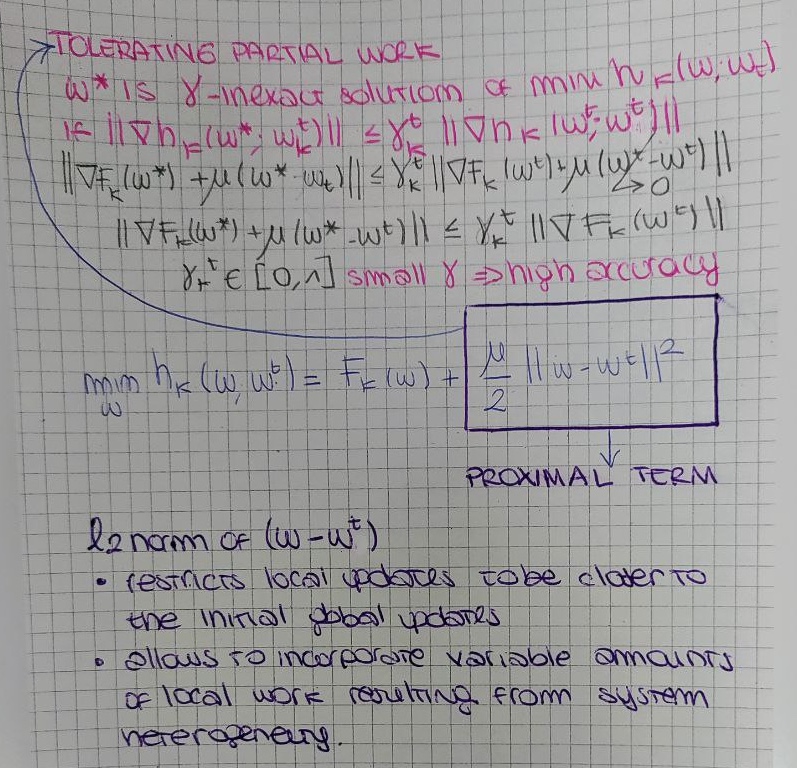 TOLERATING PARTIAL WORK
w* is γ-inexact solution of min h_k(w; w_t)
if ||∇h_k(w*; w_k^t)|| ≤ γ_k^t ||∇h_k(w^t; w^t)||
||∇F_k(w*) + μ(w* - w_t)|| ≤ γ_k^t ||∇F_k(w^t) + μ(w^t - w^t)||
→ 0
||∇F_k(w*) + μ(w* - w^t)|| ≤ γ_k^t ||∇F_k(w^t)||
γ_k^t ∈ [0,1] small γ ⇒ high accuracy
min_w h_k(w, w^t) = F_k(w) + μ/2 ||w - w^t||²
PROXIMAL TERM
l2 norm of (w - w^t)
• restricts local updates to be closer to
the initial global updates
• allows to incorporate variable amounts
of local work resulting from system
heterogeneity.